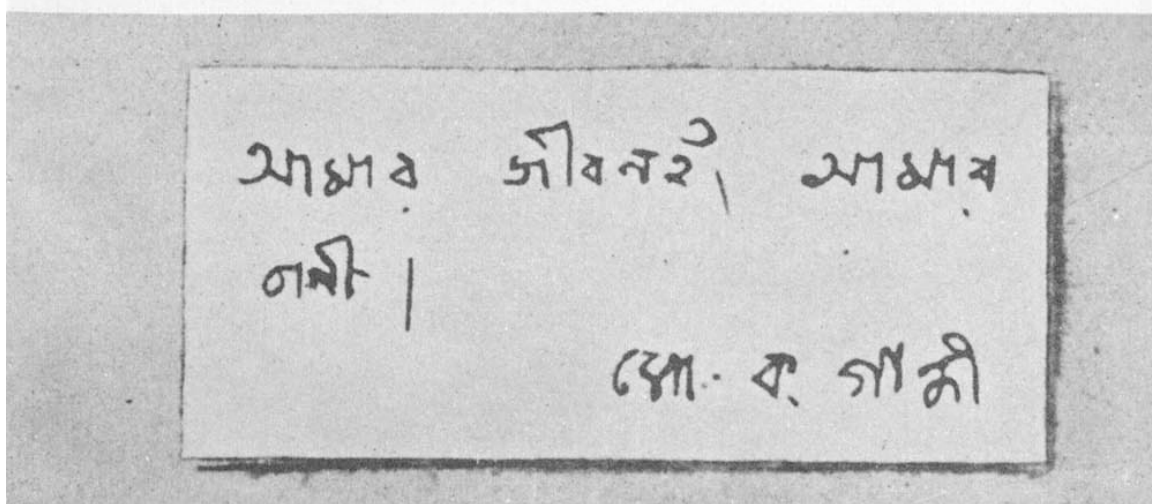 আমার জীবনই আমার
বাণী।
মো. ক. গান্ধী